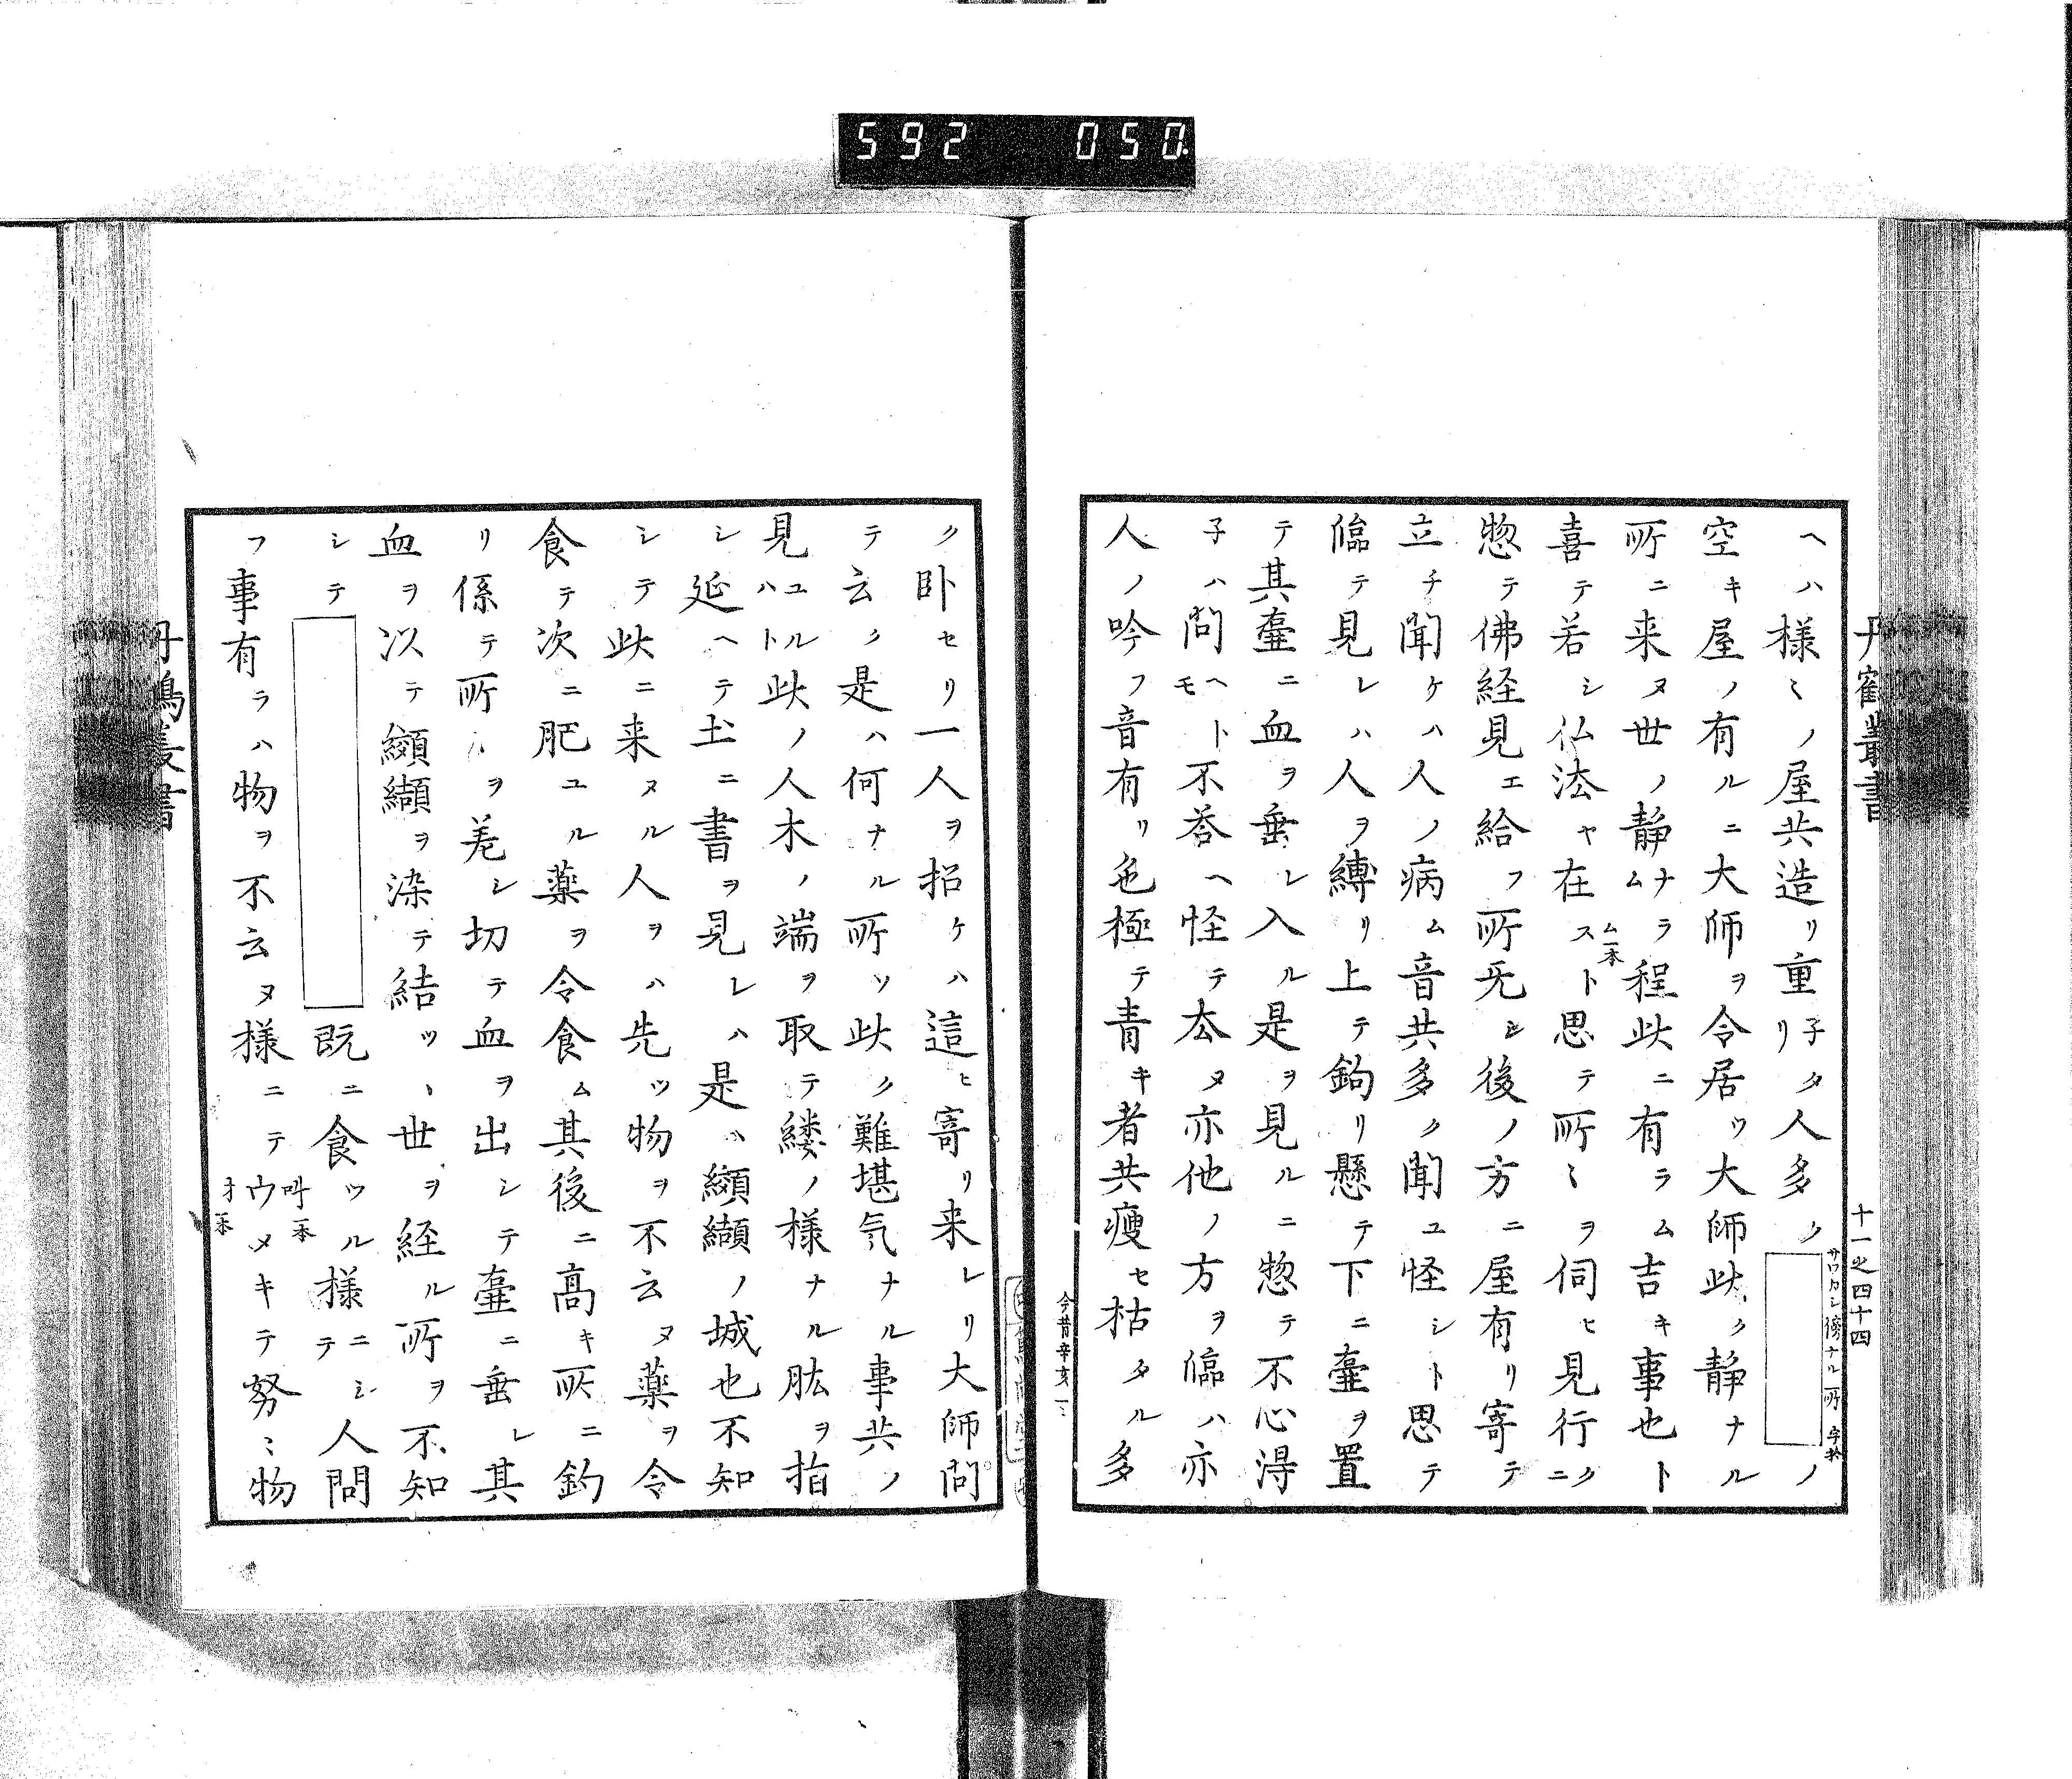 592 050.
丹鶴叢書
十一之四十四
ヘハ様〻ノ屋共造リ重子タリ人多クノ
サワカシ傍ナル所
空キ屋ノ有ルニ大師ヲ令居ツ大師此ク静ナル
所ニ来ヌ世ノ静ナラム程此ニ有ラム吉キ事也ト
喜テ若シ仏法ヤ在スト思テ所〻ヲ伺ヒ見行クニ
ム一本
惣テ佛経見エ給フ所无シ後ノ方ニ屋有リ寄テ
立チ聞ケハ人ノ病ム音共多ク聞ユ怪シト思テ
臨テ見レハ人ヲ縛リ上テ鉤リ懸テ下ニ壷ヲ置
テ其壷ニ血ヲ垂レ入ル是ヲ見ルニ惣テ不心得
子ハ問ヘトモ不荅ヘ怪テ厺ヌ亦他ノ方ヲ臨ハ亦
人ノ吟フ音有リ色極テ青キ者共痩セ枯タル多
今昔辛亥一
ク卧セリ一人ヲ招ケハ這ヒ寄リ来レリ大師問
テ云ク是ハ何ナル所ソ此ク難堪気ナル事共ノ
見ユルハト此ノ人木ノ端ヲ取テ縷ノ様ナル肱ヲ指
シ延ヘテ土ニ書ヲ見レハ是ハ纐纈ノ城也不知
シテ此ニ来ヌル人ヲハ先ツ物ヲ不云ヌ薬ヲ令
食テ次ニ肥ユル薬ヲ令食ム其後ニ高キ所ニ釣
リ係テ所〻ヲ差シ切テ血ヲ出シテ壷ニ垂レ其
血ヲ以テ纐纈ヲ染テ結ツヽ世ヲ経ル所ヲ不知
シテ既ニ食ツル様ニシテ人問
フ事有ラハ物ヲ不云ヌ様ニテウメキテ努〻物
叫一本
丹鶴叢書